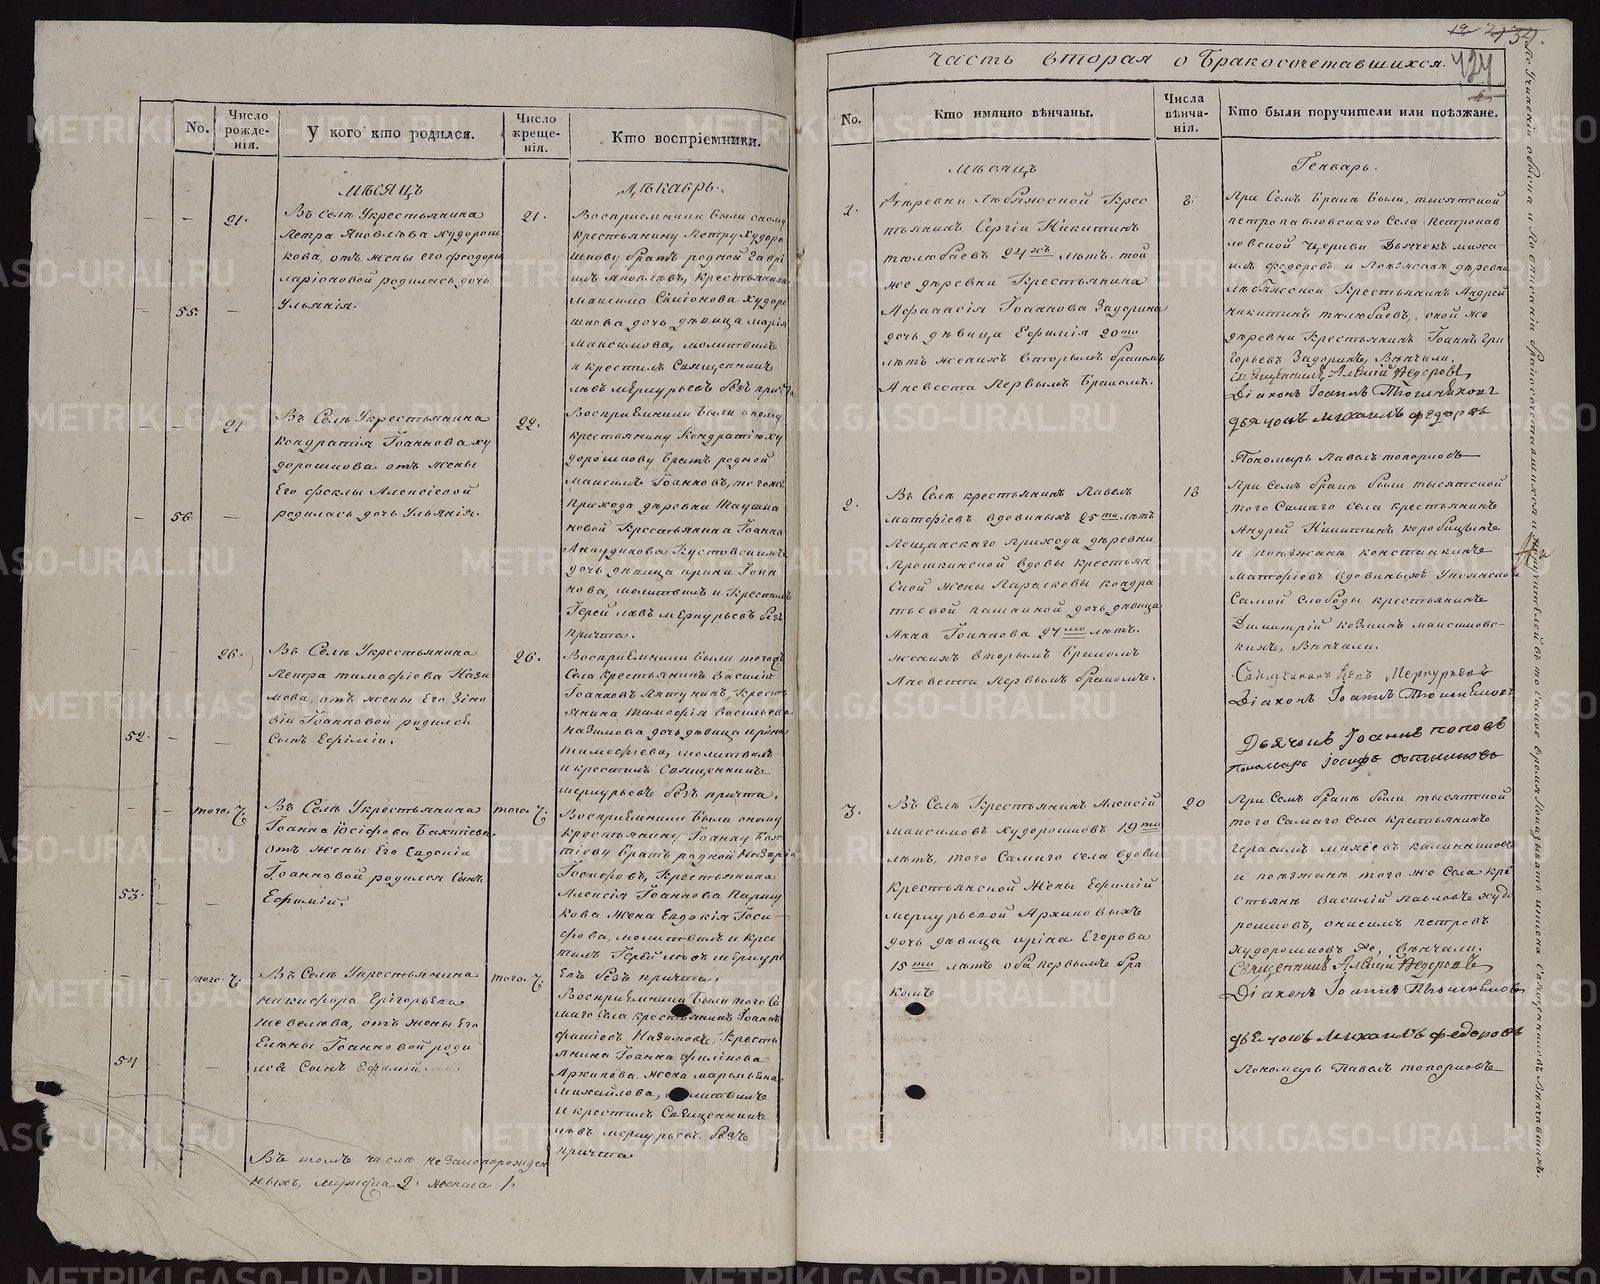 No.
Число рожде-нія.
У кого кто родился.
Число креще-нія.
Кто воспріемники.
мѣсяцъ
декабрь.
21.
Въ Селѣ Укрестьянина
Петра Яковлева худорош
кова, отъ жены его феодоры
ларіоновой родилась дочь
Ульянія.
55.
21.
Воспріемники были оному
крестьянину Петру худоро
шкову братъ родной Гаврі
илъ яковлевъ, крестьянина
Максима Симіонова худоро
шкова дочь дѣвица марія
Максимова, молитвилъ
и крестилъ Священникъ
левъ меркурьевъ безъ причта
21
Въ Селѣ Укрестьянина
кондратія Іоаннова ху
дорошкова отъ жены
Его феклы Алексіевой
родилась дочь Ульянія.
56.
22.
Воспріемники были оному
крестьянину Кондратію ху
дорошкову братъ родной
Максимъ Іоанновъ,
прихода деревни
новой Крестьянина Іоанна
дочь дѣвица ирина Іоан
нова, молитвилъ и крестилъ
Іерей левъ меркурьевъ безъ
причта.
26.
Въ Селѣ Укрестьянина
Петра тимофіева Нази
мова, отъ жены Его Зіно
віи Іоанновой родился
Сынъ Ефімій.
52.
26.
Воспріемники были тогожъ
Села крестьянинъ Василій
Іоанновъ Лапунинъ, кресть
янина тимофія васильева
назимова дочь дѣвица ирина
тимофіева, молитвилъ
и крестилъ Священникъ
меркурьевъ безъ причта.
того. Ч.
Въ Селѣ Укрестьянина
Іоанна Іосіфова Бахтіева.
отъ жены Его Евдокіи
Іоанновой родился Сынъ
Ефимій.
53.
того. Ч.
Воспріемники были оному
крестьянину Іоанну Бах
тіеву братъ родной Назарій
Іосифовъ, Крестьянина
Алексія Іоаннова Паршу
кова жена Евдокія Іоси-
фова, молитвилъ и кре
стилъ Іерей левъ меркурь
евъ безъ причта.
того. Ч.
Въ Селѣ Укрестьянина
никифора Григорьева
Шевелюва, отъ жены Его
Елены Іоанновой роди
лся Сынъ Ефимій.
54
того. Ч.
Воспріемники были того Са
маго Села крестьянинъ Іоаннъ
Назимовъ, Кресть
янина Іоанна филінова
Архипова жена марѳа
михайлова, молитвилъ
и крестилъ Священникъ
левъ меркурьевъ безъ
причта
Въ томъ числѣ незаконорожден
ныхъ, мужска 2. женска 1.
часть вторая о Бракосочетавшихся.
424
No.
Кто имянно вѣнчаны.
Числа вѣнча-нія.
Кто были поручители или поѣзжане.
мѣсяцъ
Генварь.
1.
деревни Любяжской Крес
тьянинъ Сергіи Никитинъ
тюлюбаевъ 24хъ лѣтъ. той
же деревни Крестьянина
Афанасія Іоаннова Задорина
дочь дѣвица Ефимія 20ти
лѣтъ женихъ вторымъ бракомъ
А невеста Первымъ бракомъ.
8.
При Семъ Бракѣ были, тысятской
петропавловскаго Села петропав
ловской Церкви Дьячекъ миха-
илъ федоровъ и Поезжанъ деревни
любяжской Крестьянинъ Андрей
никитинъ тюлюбаевъ, оной же
деревни Крестьянинъ Іоаннъ Гри
горьевъ Задоринъ, Вѣнчали.
Священникъ Алексій Ѳедоровъ
Діаконъ Іоаннъ
дьячокъ михаилъ федоровъ
Пономарь павелъ топорковъ
2.
Въ Селѣ крестьянинъ Павелъ
матфіевъ вдовиныхъ 25ти лѣтъ
Пещанскаго прихода деревни
Прошкинской вдовы крестьян
ской жены Парасковы кондра
тьевой дочь дѣвица
Анна Іоаннова 27ми лѣтъ.
женихъ вторымъ бракомъ
А невеста первымъ бракомъ.
18
При Семъ бракѣ были тысятской
того Самаго села крестьянинъ
Андрей Никитинъ коробицынъ
и поезжанъ констанкинъ
матфіевъ вдовиныхъ Укянской
Самой слободы крестьянинъ
Димитрій козминъ максимовс-
кихъ, Вѣнчали.
Священникъ Левъ Меркурьевъ
Діаконъ Іоаннъ
Дьячокъ Іоаннъ поповъ
Пономарь іосифъ
3.
Въ Селѣ Крестьянинъ Алексій
максимовъ худорошковъ 19ти
лѣтъ, того Самаго села вдовы
крестьянской жены Ефимій
меркурьевой Архиповыхъ
дочь дѣвица ирина Егорова
15ти лѣтъ оба первымъ бра
комъ
20
При Семъ бракѣ были тысятской
того Самаго села крестьянинъ
герасимъ михѣевъ калинниковъ
и поезжанъ того же Села кре
стьянѣ василій павловъ худо
рошковъ, онисимъ петровъ
худорошковъ вѣнчали.
Священникъ Алексій Ѳедоровъ
Діаконъ Іоаннъ
дьячокъ михаилъ федоровъ
Пономарь Павелъ топорковъ